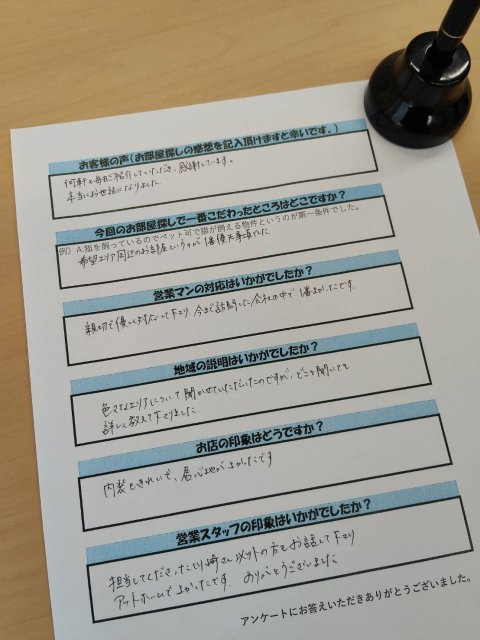 お客様の声（お部屋探しの感想を記入頂けますと幸いです。）
何軒も毎日ご紹介していただき、感謝しています。
本当にお世話になりました。
今回のお部屋探しで一番こだわったところはどこですか？
例）A.猫を飼っているのでペット可で猫が飼える物件というのが第一条件でした。
希望エリア周辺のお部屋というのが1番優先事項でした
営業マンの対応はいかがでしたか？
親切で優しく対応して下さり、今まで訪問した会社の中で1番よかったです。
地域の説明はいかがでしたか？
色々なエリアについて聞かせていただいたのですが、どこを聞いても
詳しく教えて下さりました。
お店の印象はどうですか？
内装もきれいで、居心地がよかったです
営業スタッフの印象はいかがでしたか？
担当してくださった山崎さん以外の方もお話して下さり
アットホームでよかったです. ありがとうございました
アンケートにお答えいただきありがとうございました。